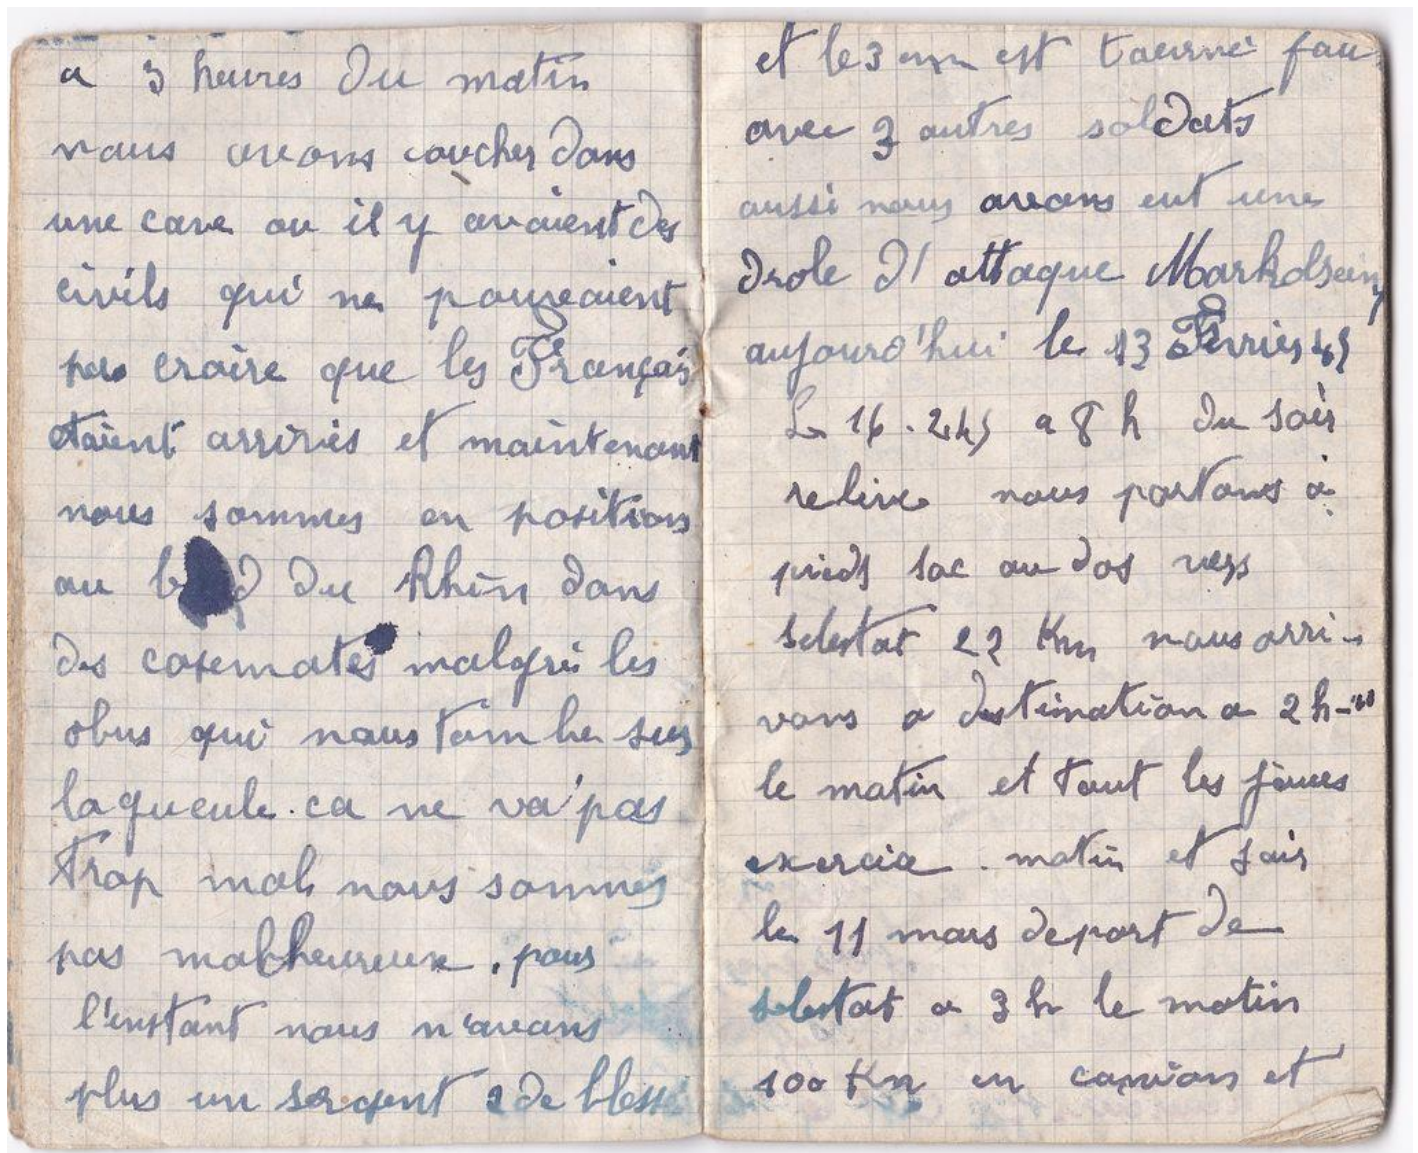 a 3 heures du matin
nous avons coucher dans
une cave ou il y avaient des
civils qui ne pouvaient
pas croire que les Français
étaient arrivés et maintenant
nous sommes en positions
au b d du Rhin dans
des casemates malgré les
obus qui nous tombe sur
la gueule. ca ne va pas
trop mal nous sommes
pas malheureux. pour
l'instant nous n'avons
plus un sergent 2 de bless
et le 3 em est tourné fou
avec 3 autres soldats
aussi nous avons eut une
drole d'attaque Markolsein
aujourd'hui le 13 Fevrier 45
Le 16.2.45 a 8 h du soir
relive nous partons à
pieds sac au dos vers
Selestat 22 Km nous arri-
vons a destination a 2 h
le matin et tout les jours
exercice. matin et soir
le 11 mars depart de
selestat a 3 h le matin
100 Km en camions et